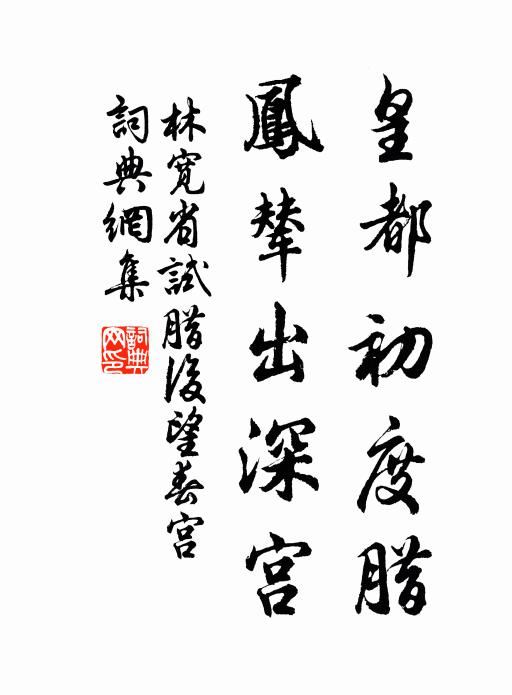 皇都初度腊
鳳輦出深宮
林寬省試腊後望春宮
詞典網集
詞典網印